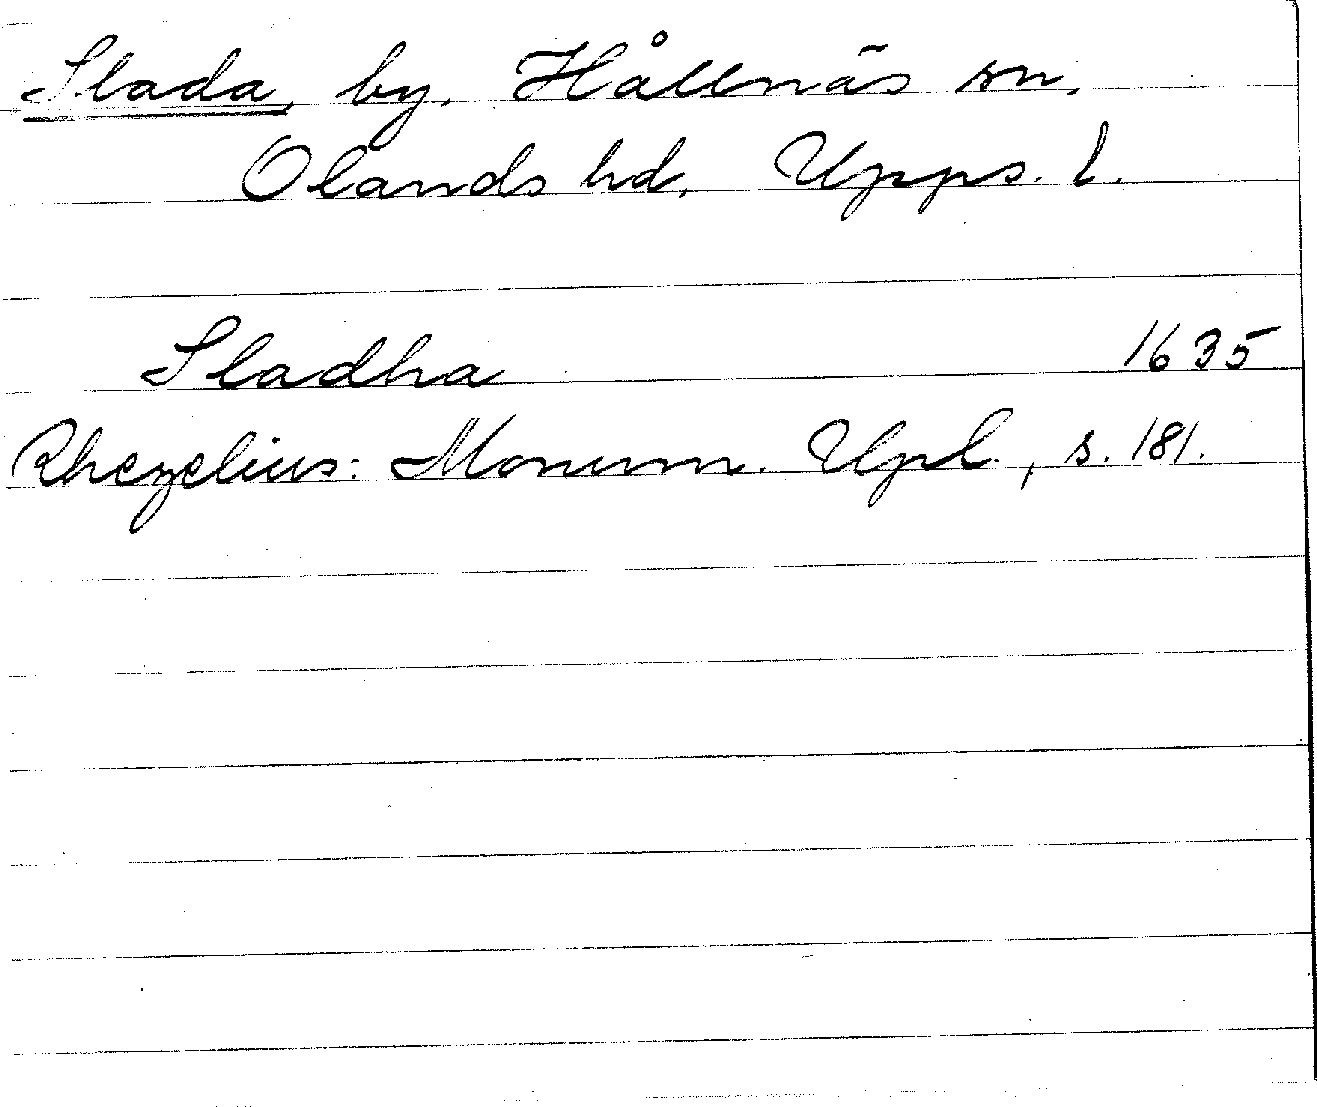 Slada, by. Hållnäs sn.
Olands hd. Upps. l.
Sladha 1635
Rhezelius: Monum. Upl., s. 181.